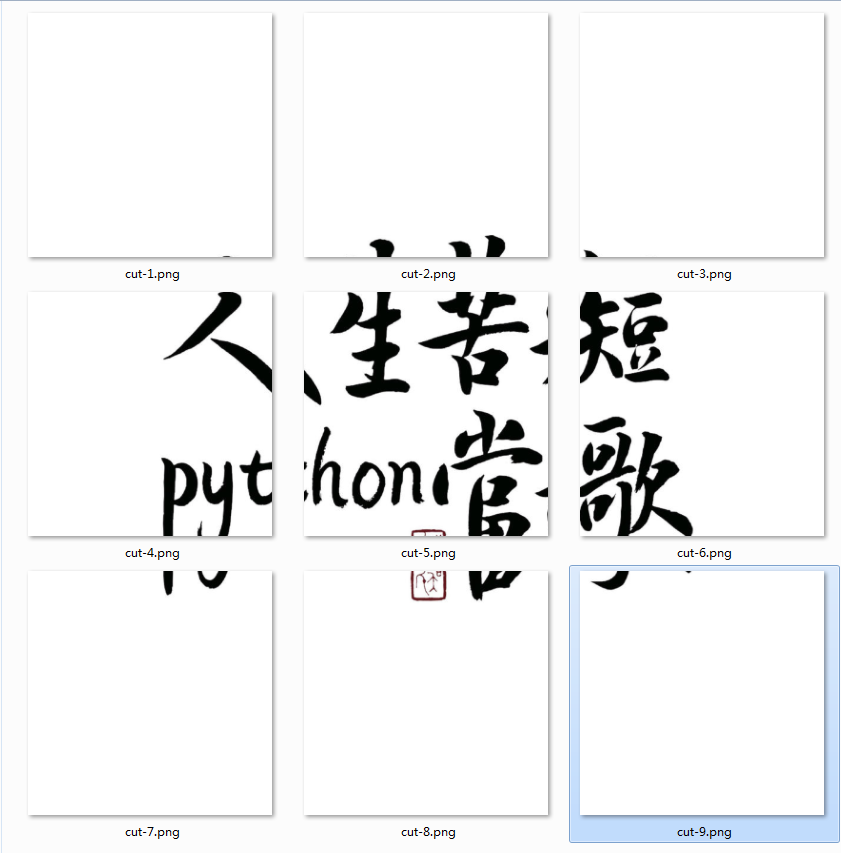 cut-1.png cut-2.png cut-3.png
人生苦短
python當歌
cut-4.png cut-5.png cut-6.png
cut-7.png cut-8.png cut-9.png